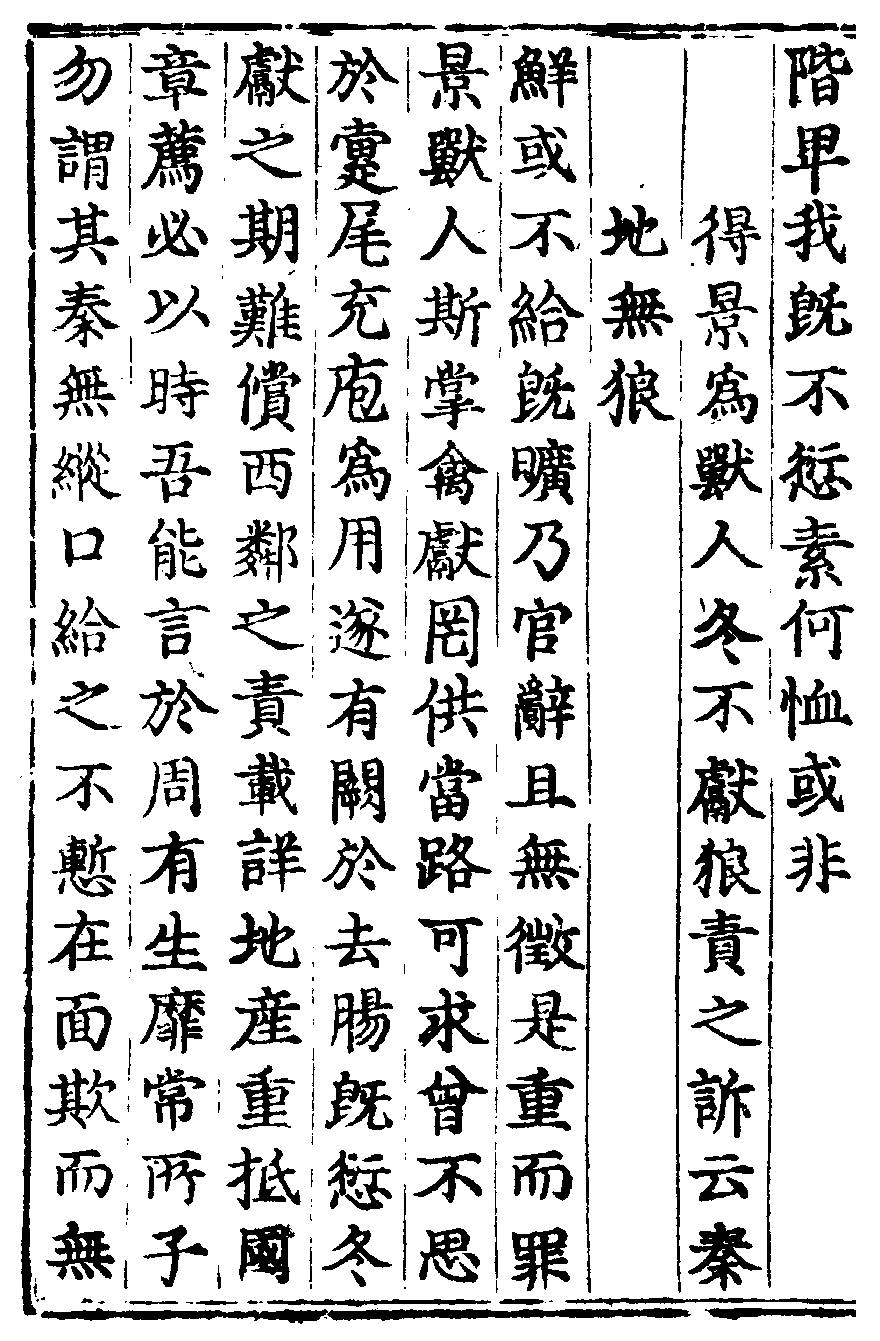 階卑我既不愆素何恤或非
得景為獸人冬不獻狼責之訴云秦
地無狼
鮮或不給既曠乃官辭且無徵是重而罪
景獸人斯掌禽獻罔供當路可求曾不思
於疐尾充庖為用遂有闕於去腸既愆冬
獻之期難償西鄰之責載詳地産重抵國
章薦必以時吾能言於周有生靡常所子
勿謂其秦無縱口給之不慙在面欺而無